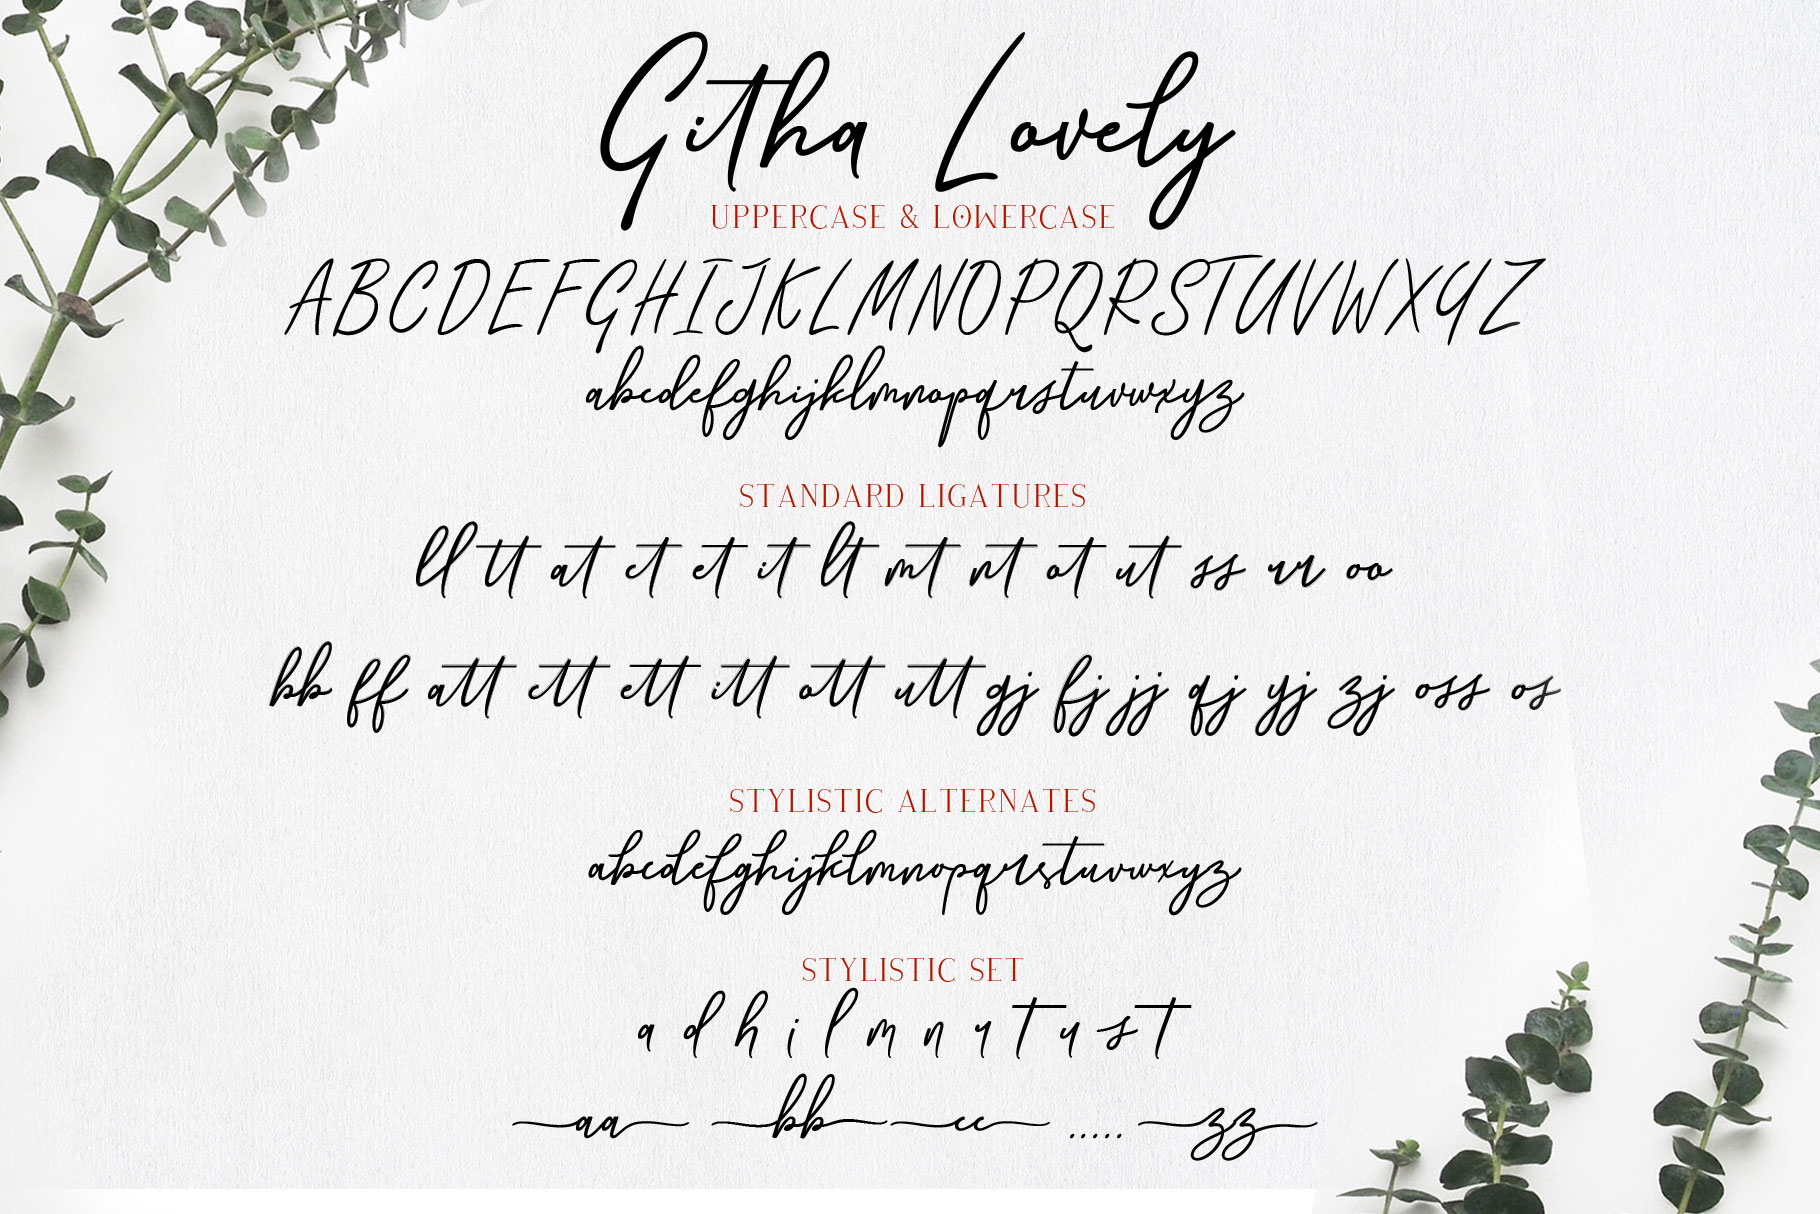 Githa Lovely
UPPERCASE & LOWERCASE
ABCDEFGHIJKLMNOPQRSTUVWXYZ
abcdefghijklmnopqrstuvwxyz
STANDARD LIGATURES
ll tt at ct et it lt mt nt ot ut ss rr oo
bb ff att ctt ett itt ott utt gj fj jj qj yj zj oss os
STYLISTIC ALTERNATES
abcdefghijklmnopqrstuvwxyz
STYLISTIC SET
a d h i l m n r t u s t
aa bb cc ..... zz